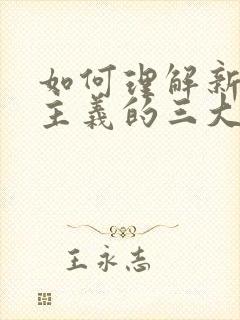 如何理解新
主义的三大
王永志